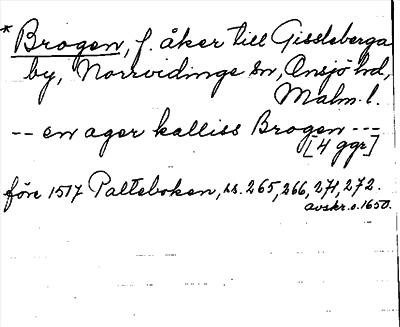 * Brogen, f. åker till Gissleberga
by, Norrvidinge sn, Onsjö hd,
Malm. l.
-- en ager kalliss Brogen ---
[4 ggr]
före 1517 Palteboken, ss. 265, 266, 271, 272.
avskr. o. 1650.